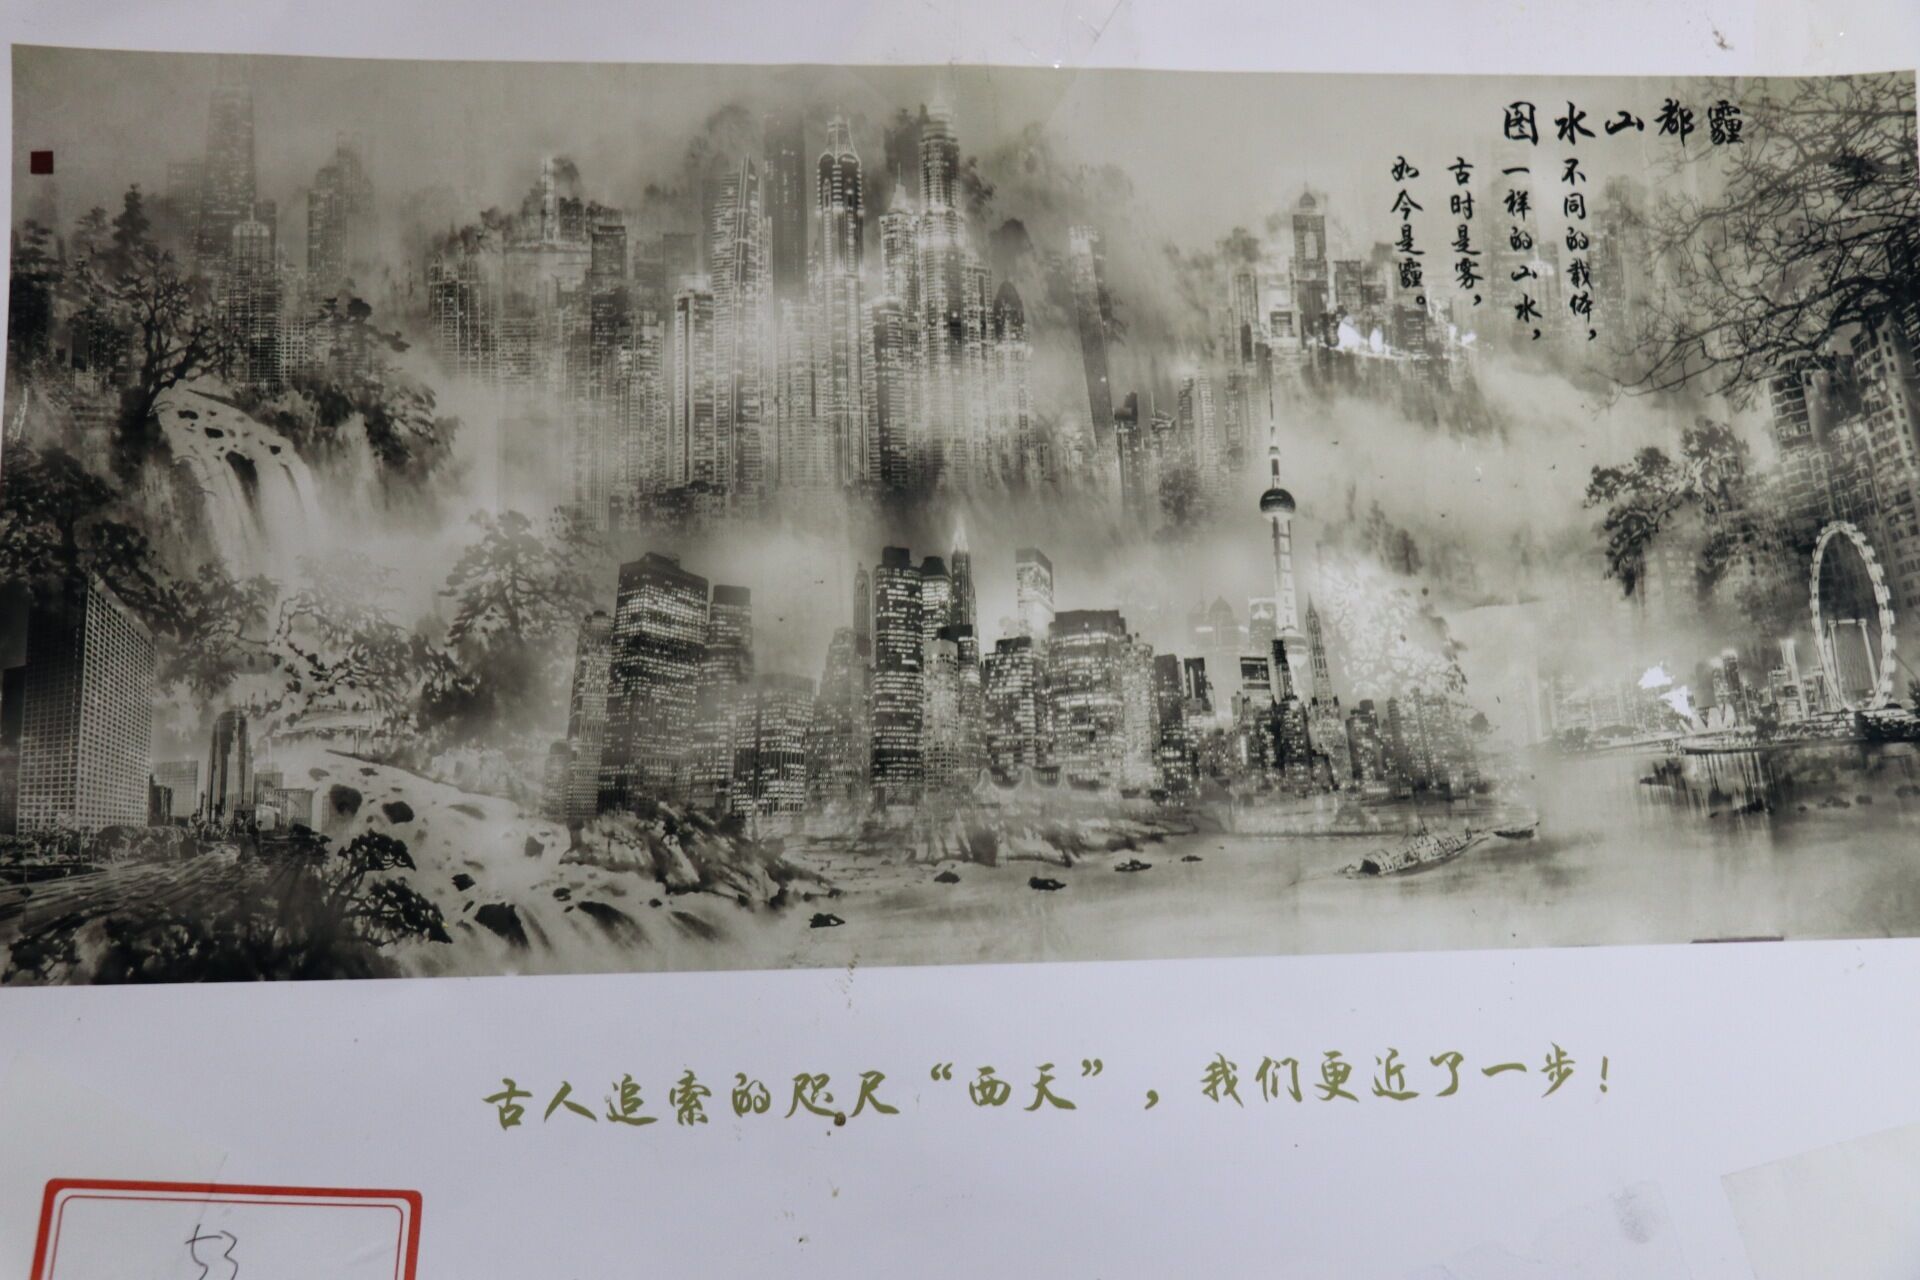 霾都山水图
不同的载体，
一样的山水，
古时是雾，
如今是霾。
古人追索的咫尺“西天”，我们更近了一步！
53